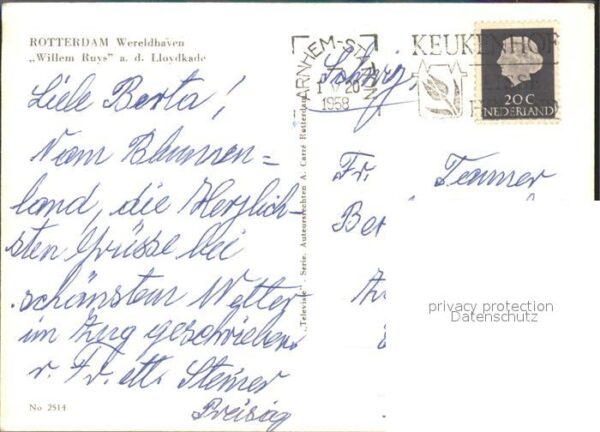 ROTTERDAM Wereldhaven
„Willem Ruys" a. d. Lloydkade
Liebe Berta!
Vom Blumen=
land, die Herzlich-
sten Grüsse bei
schönstem Wetter
im Zug geschrieben
v. Fr. Steiner
No 2514
„Televisie" - Serie. Auteursrechten A. Carré Rotterdam
ARNHEM-STATION
1 V 20
1958
KEUKENHOF
20 C
NEDERLAND
Schweiz
Fr.
Ber
privacy protection
Datenschutz